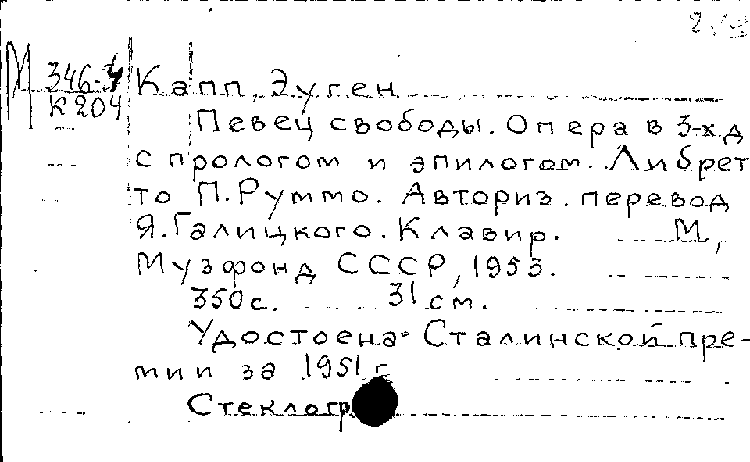 М 346-4 Капп, Эуген
К 204
Певец свободы. Опера в 3-х д
с прологом и эпилогом. Либрет
то П. Руммо. Авториз. перевод
Я. Галицкого. Клавир. М.,
Музфонд СССР, 1953.
350 с. 31 см.
Удостоена Сталинской пре-
мии за 1951 г
Стеклогр